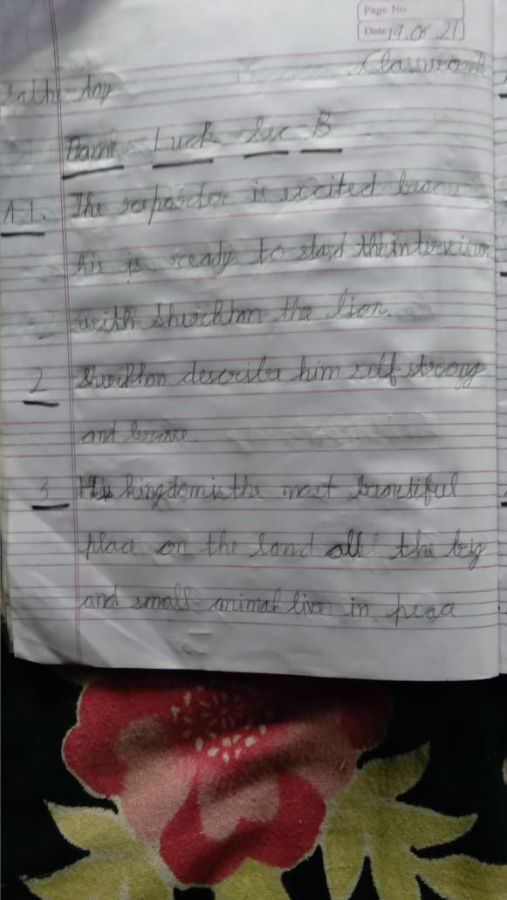 Page No.
Date 19.05.21
Classwork
day
Name - Luck Sec - B
A1. The is excited
his is ready to start the interview
with Sheerkhan the lion.
2 Sheerkhan describe him self strong
and brave.
3 His kingdom is the most beautiful
place on the land all the big
and small animal live in peac